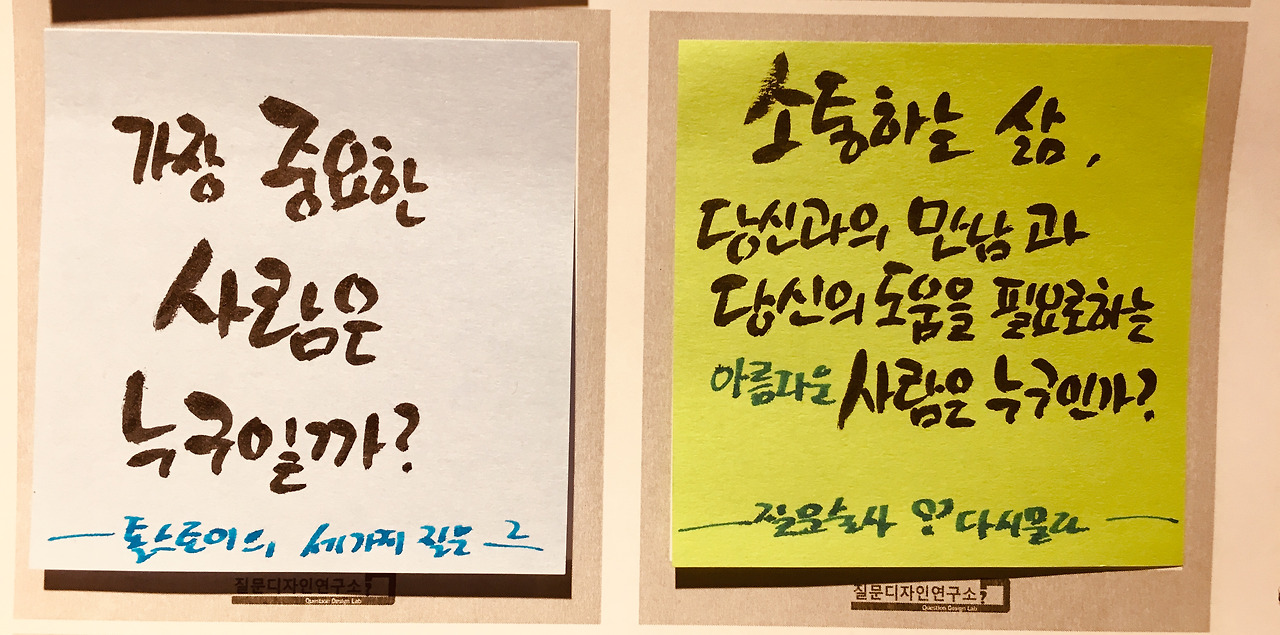 가장 중요한
사람은
누구일까?
톨스토이의 세가지 질문 2
질문디자인연구소?
Question Design Lab
소통하는 삶,
당신과의 만남과
당신의 도움을 필요로하는
아름다운 사람은 누구인가?
질문술사 다시묻다
질문디자인연구소?
Question Design Lab